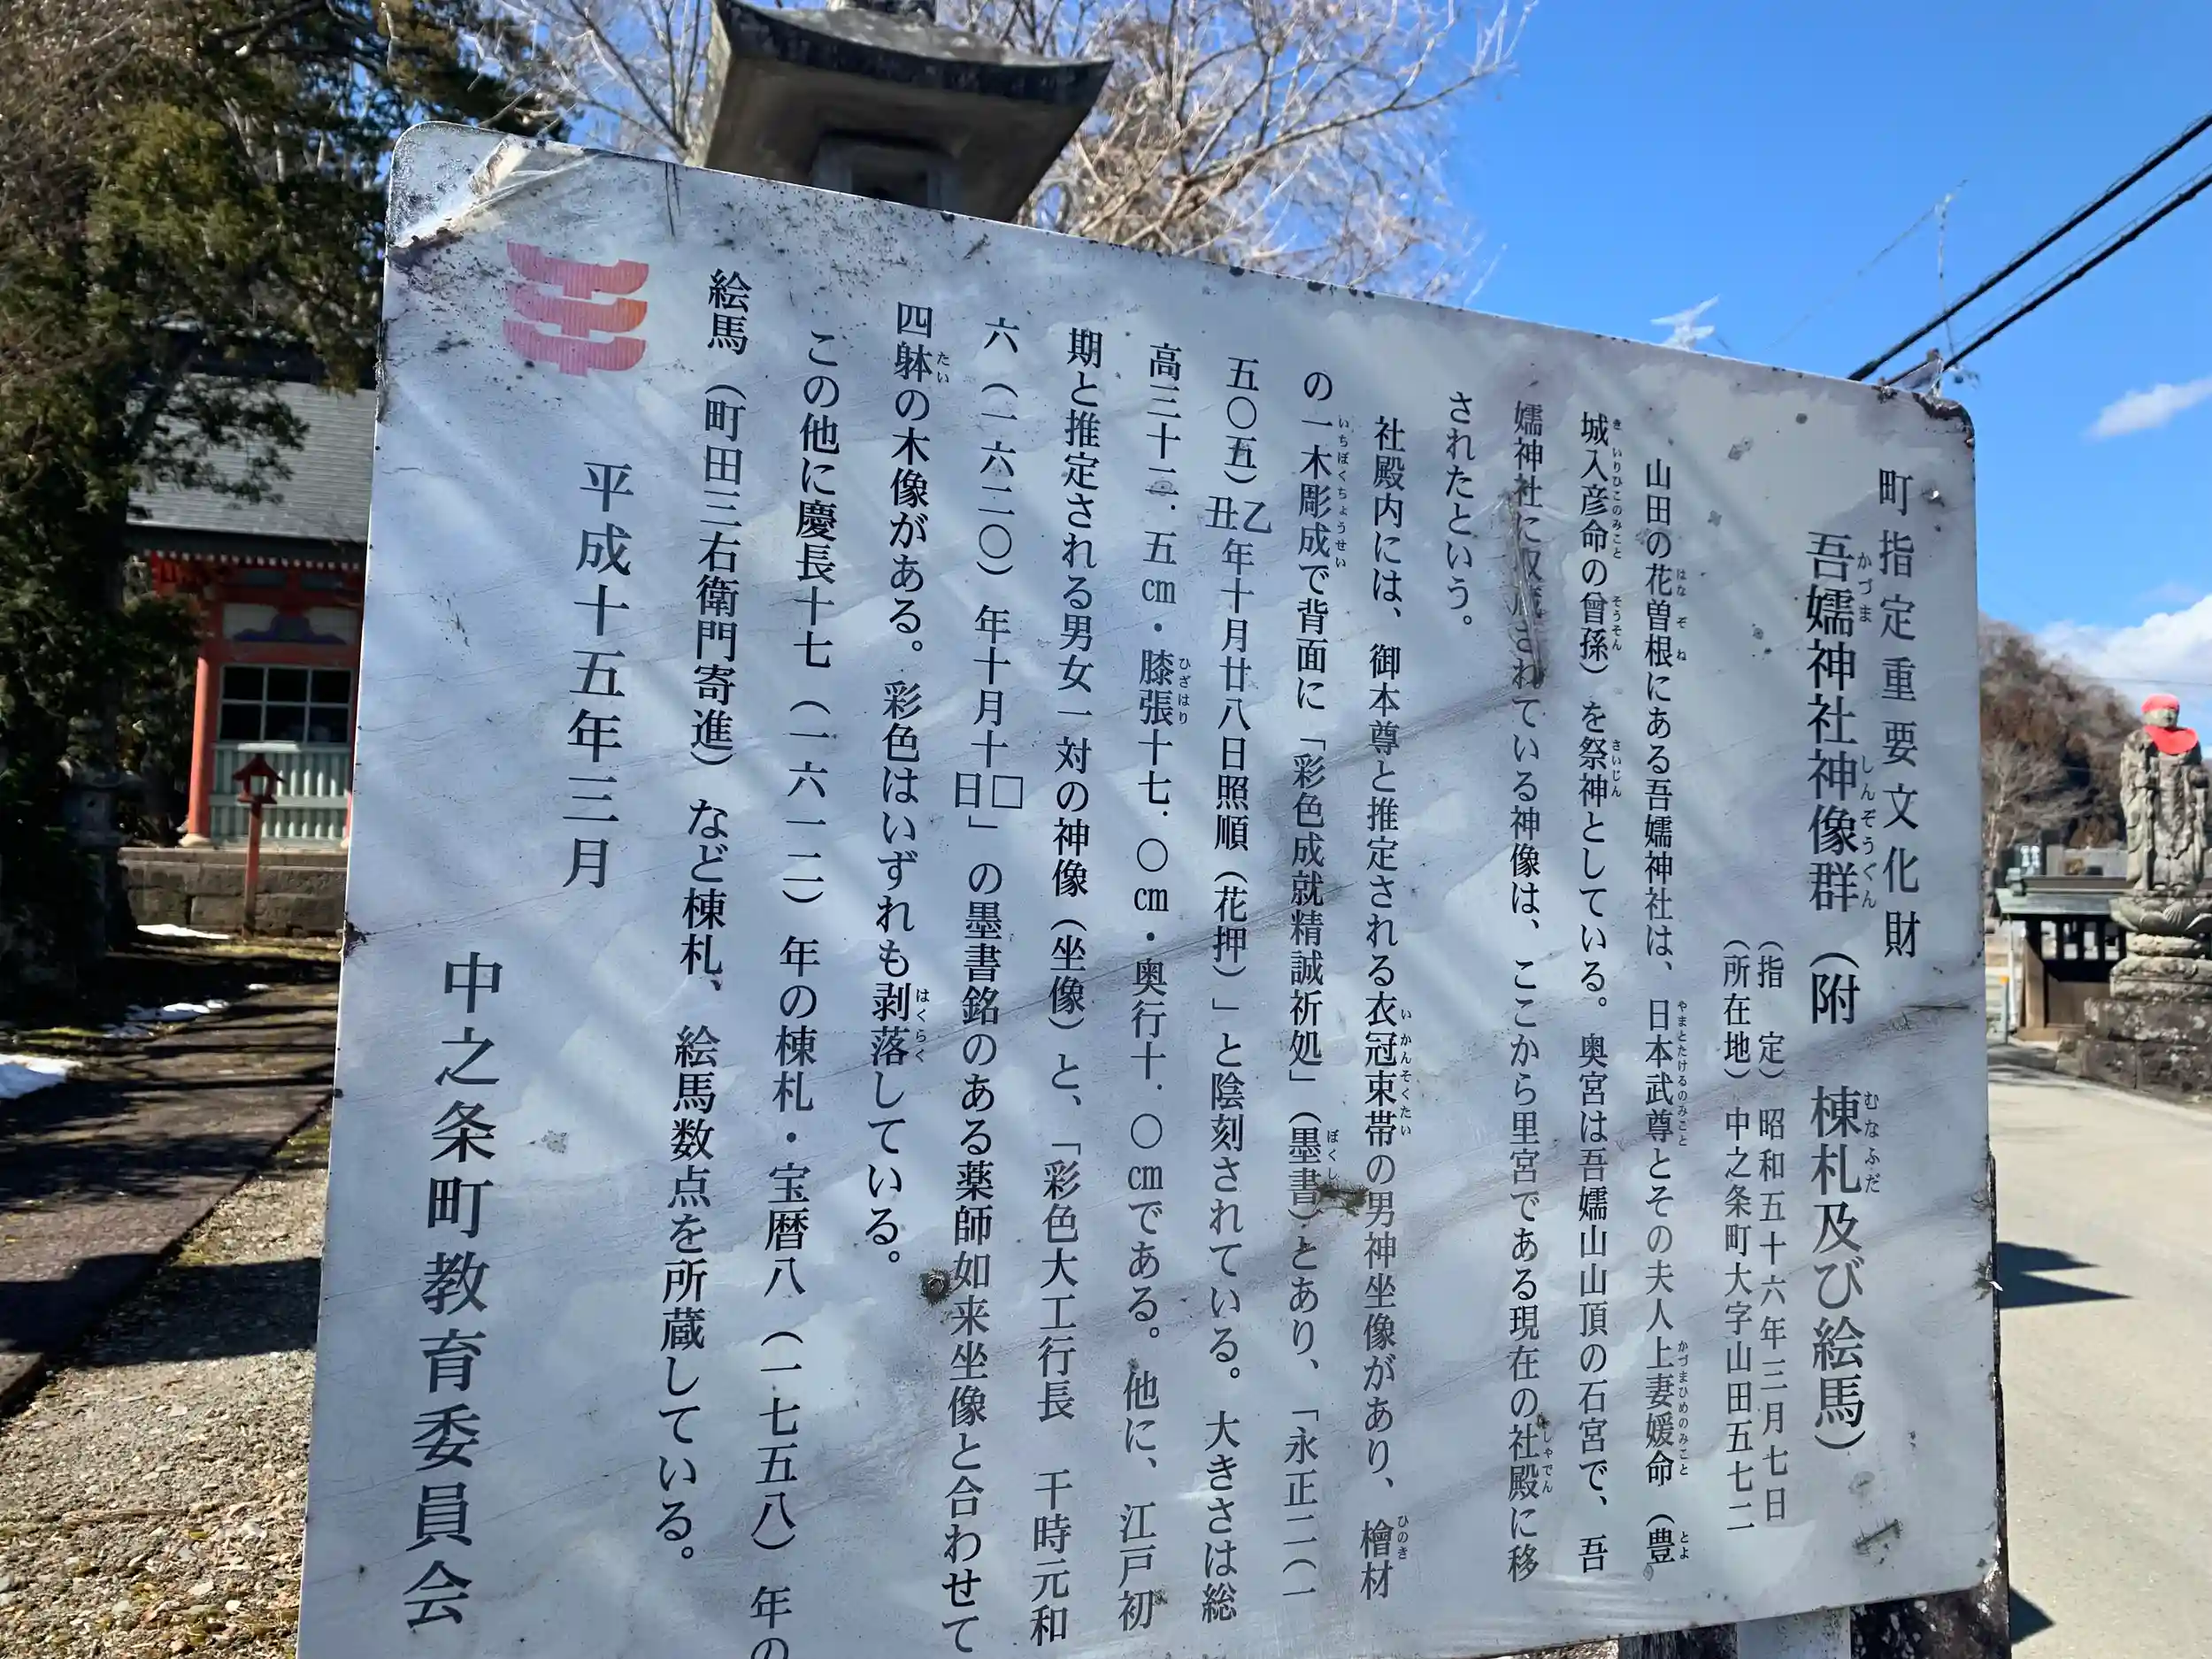 町指定重要文化財
吾嬬神社神像群（附　棟札及び絵馬）
（指　定）昭和五十六年三月七日
（所在地）中之条町大字山田五七二
山田の花曽根にある吾嬬神社は、日本武尊とその夫人上妻媛命（豊
城入彦命の曾孫）を祭神としている。奥宮は吾嬬山山頂の石宮で、吾
嬬神社に収蔵されている神像は、ここから里宮である現在の社殿に移
されたという。
社殿内には、御本尊と推定される衣冠束帯の男神坐像があり、檜材
の一木彫成で背面に「彩色成就精誠祈処」（墨書）とあり、「永正二（一
五〇五）乙丑年十月廿八日照順（花押）」と陰刻されている。大きさは総
高三十三．五㎝・膝張十七．〇㎝・奥行十．〇㎝である。他に、江戸初
期と推定される男女一対の神像（坐像）と、「彩色大工行長　干時元和
六（一六二〇）年十月十□日」の墨書銘のある薬師如来坐像と合わせて
四躰の木像がある。彩色はいずれも剥落している。
この他に慶長十七（一六一二）年の棟札・宝暦八（一七五八）年の
絵馬（町田三右衛門寄進）など棟札、絵馬数点を所蔵している。
平成十五年三月
中之条町教育委員会